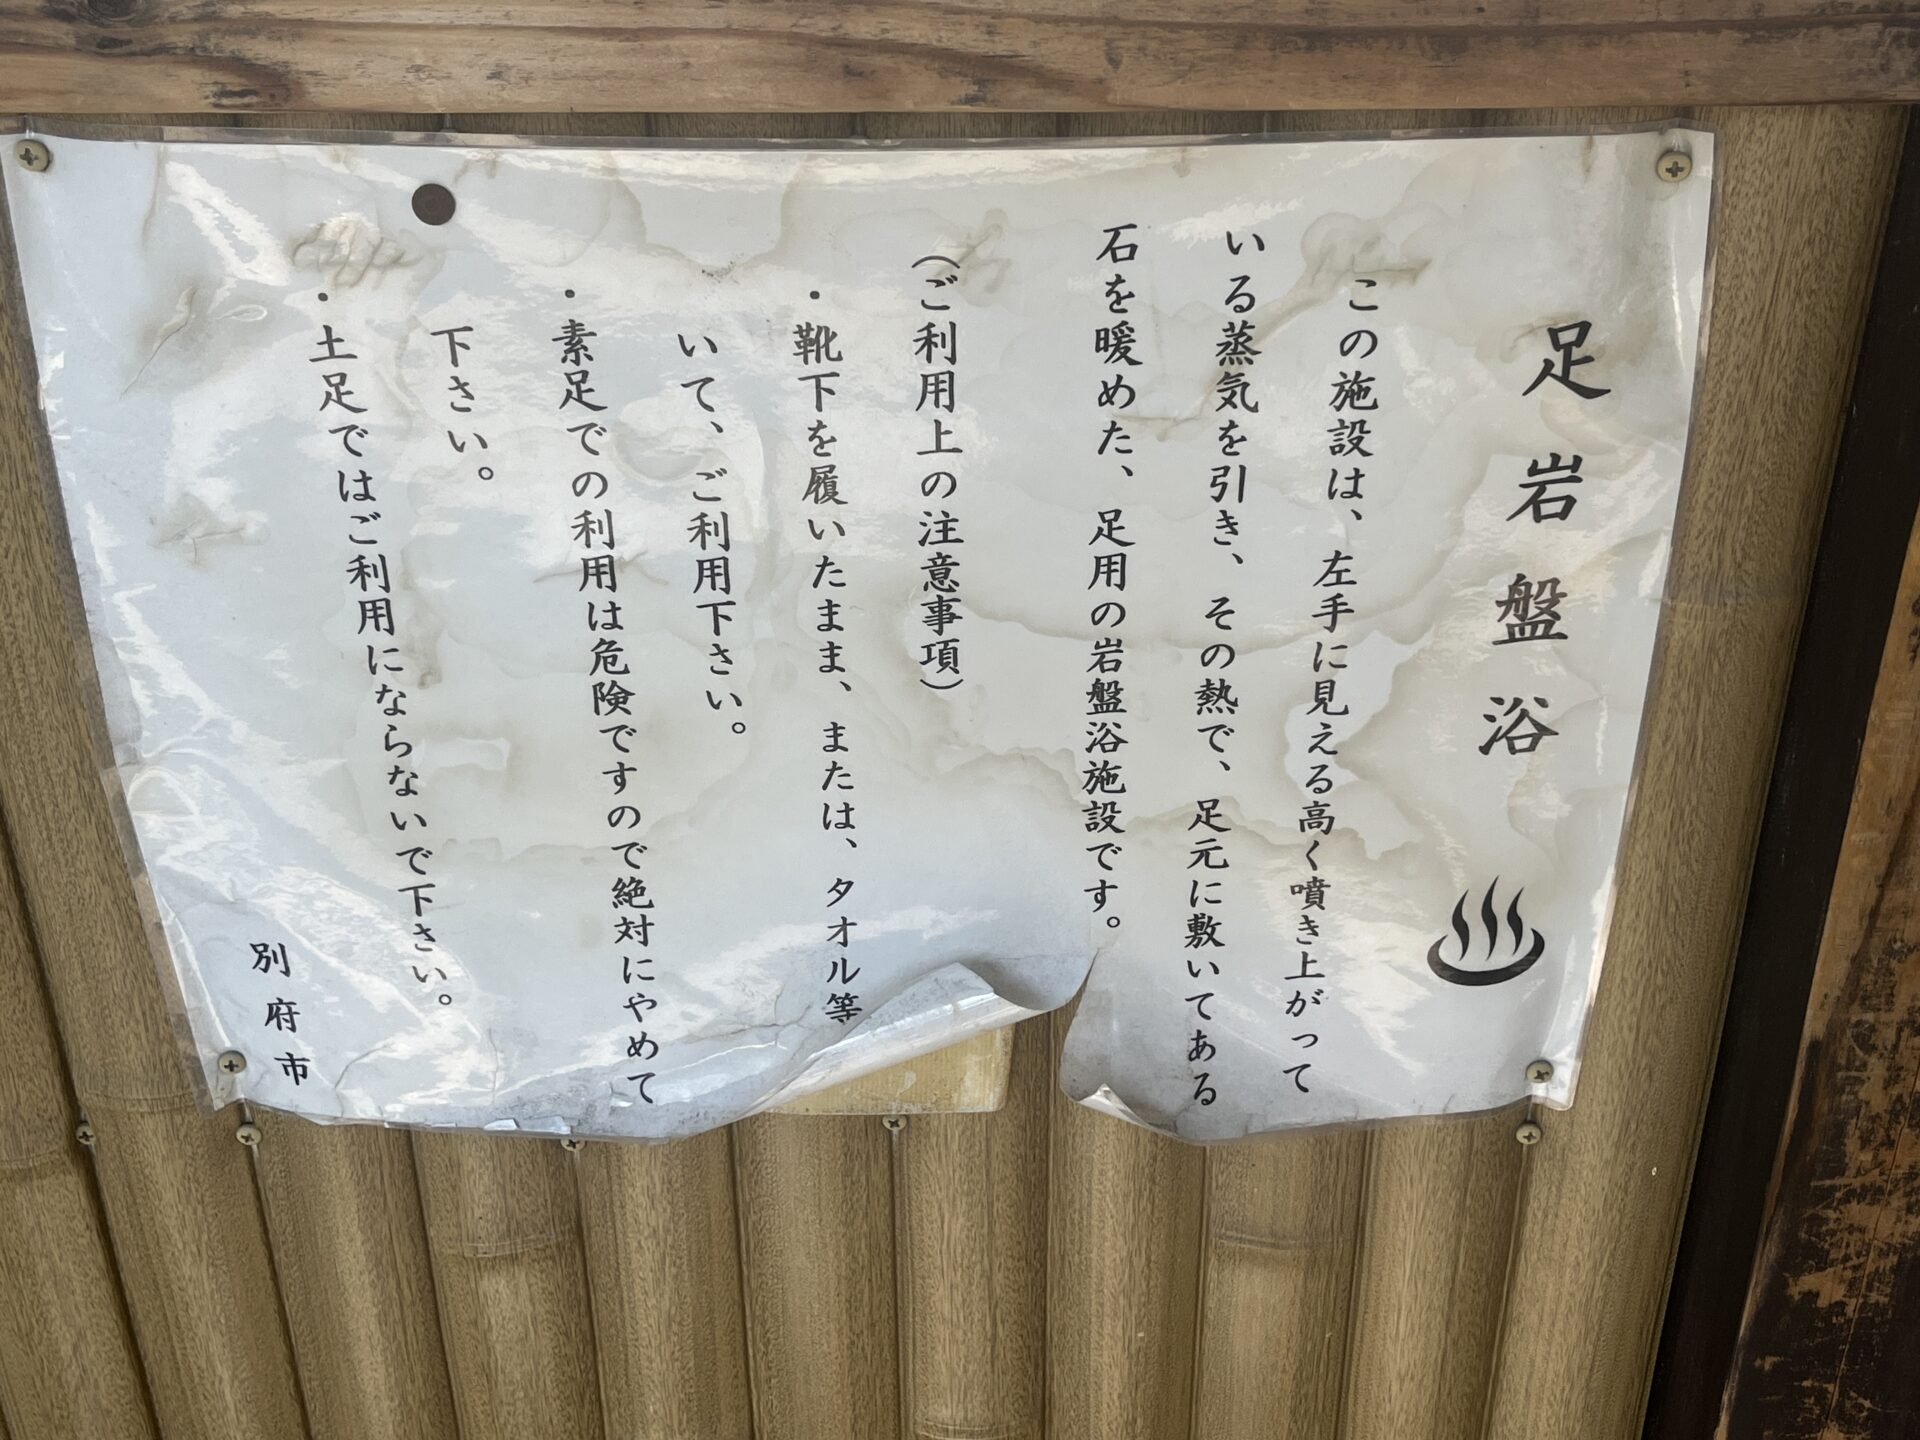 足岩盤浴
この施設は、左手に見える高く噴き上がって
いる蒸気を引き、その熱で、足元に敷いてある
石を暖めた、足用の岩盤浴施設です。
（ご利用上の注意事項）
・靴下を履いたまま、または、タオル等
いて、ご利用下さい。
・素足での利用は危険ですので絶対にやめて
下さい。
・土足ではご利用にならないで下さい。
別府市